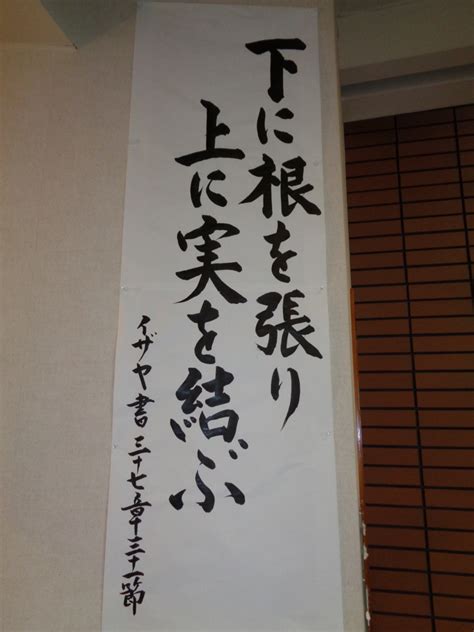 下に根を張り
上に実を結ぶ
イザヤ書三十七章三十一節